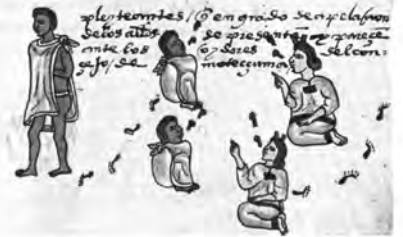 pleyteantes / q̃ en grado de apelaçion
delos altos de presente parece
ante los oydores del con=
sejo / de motecçuma /